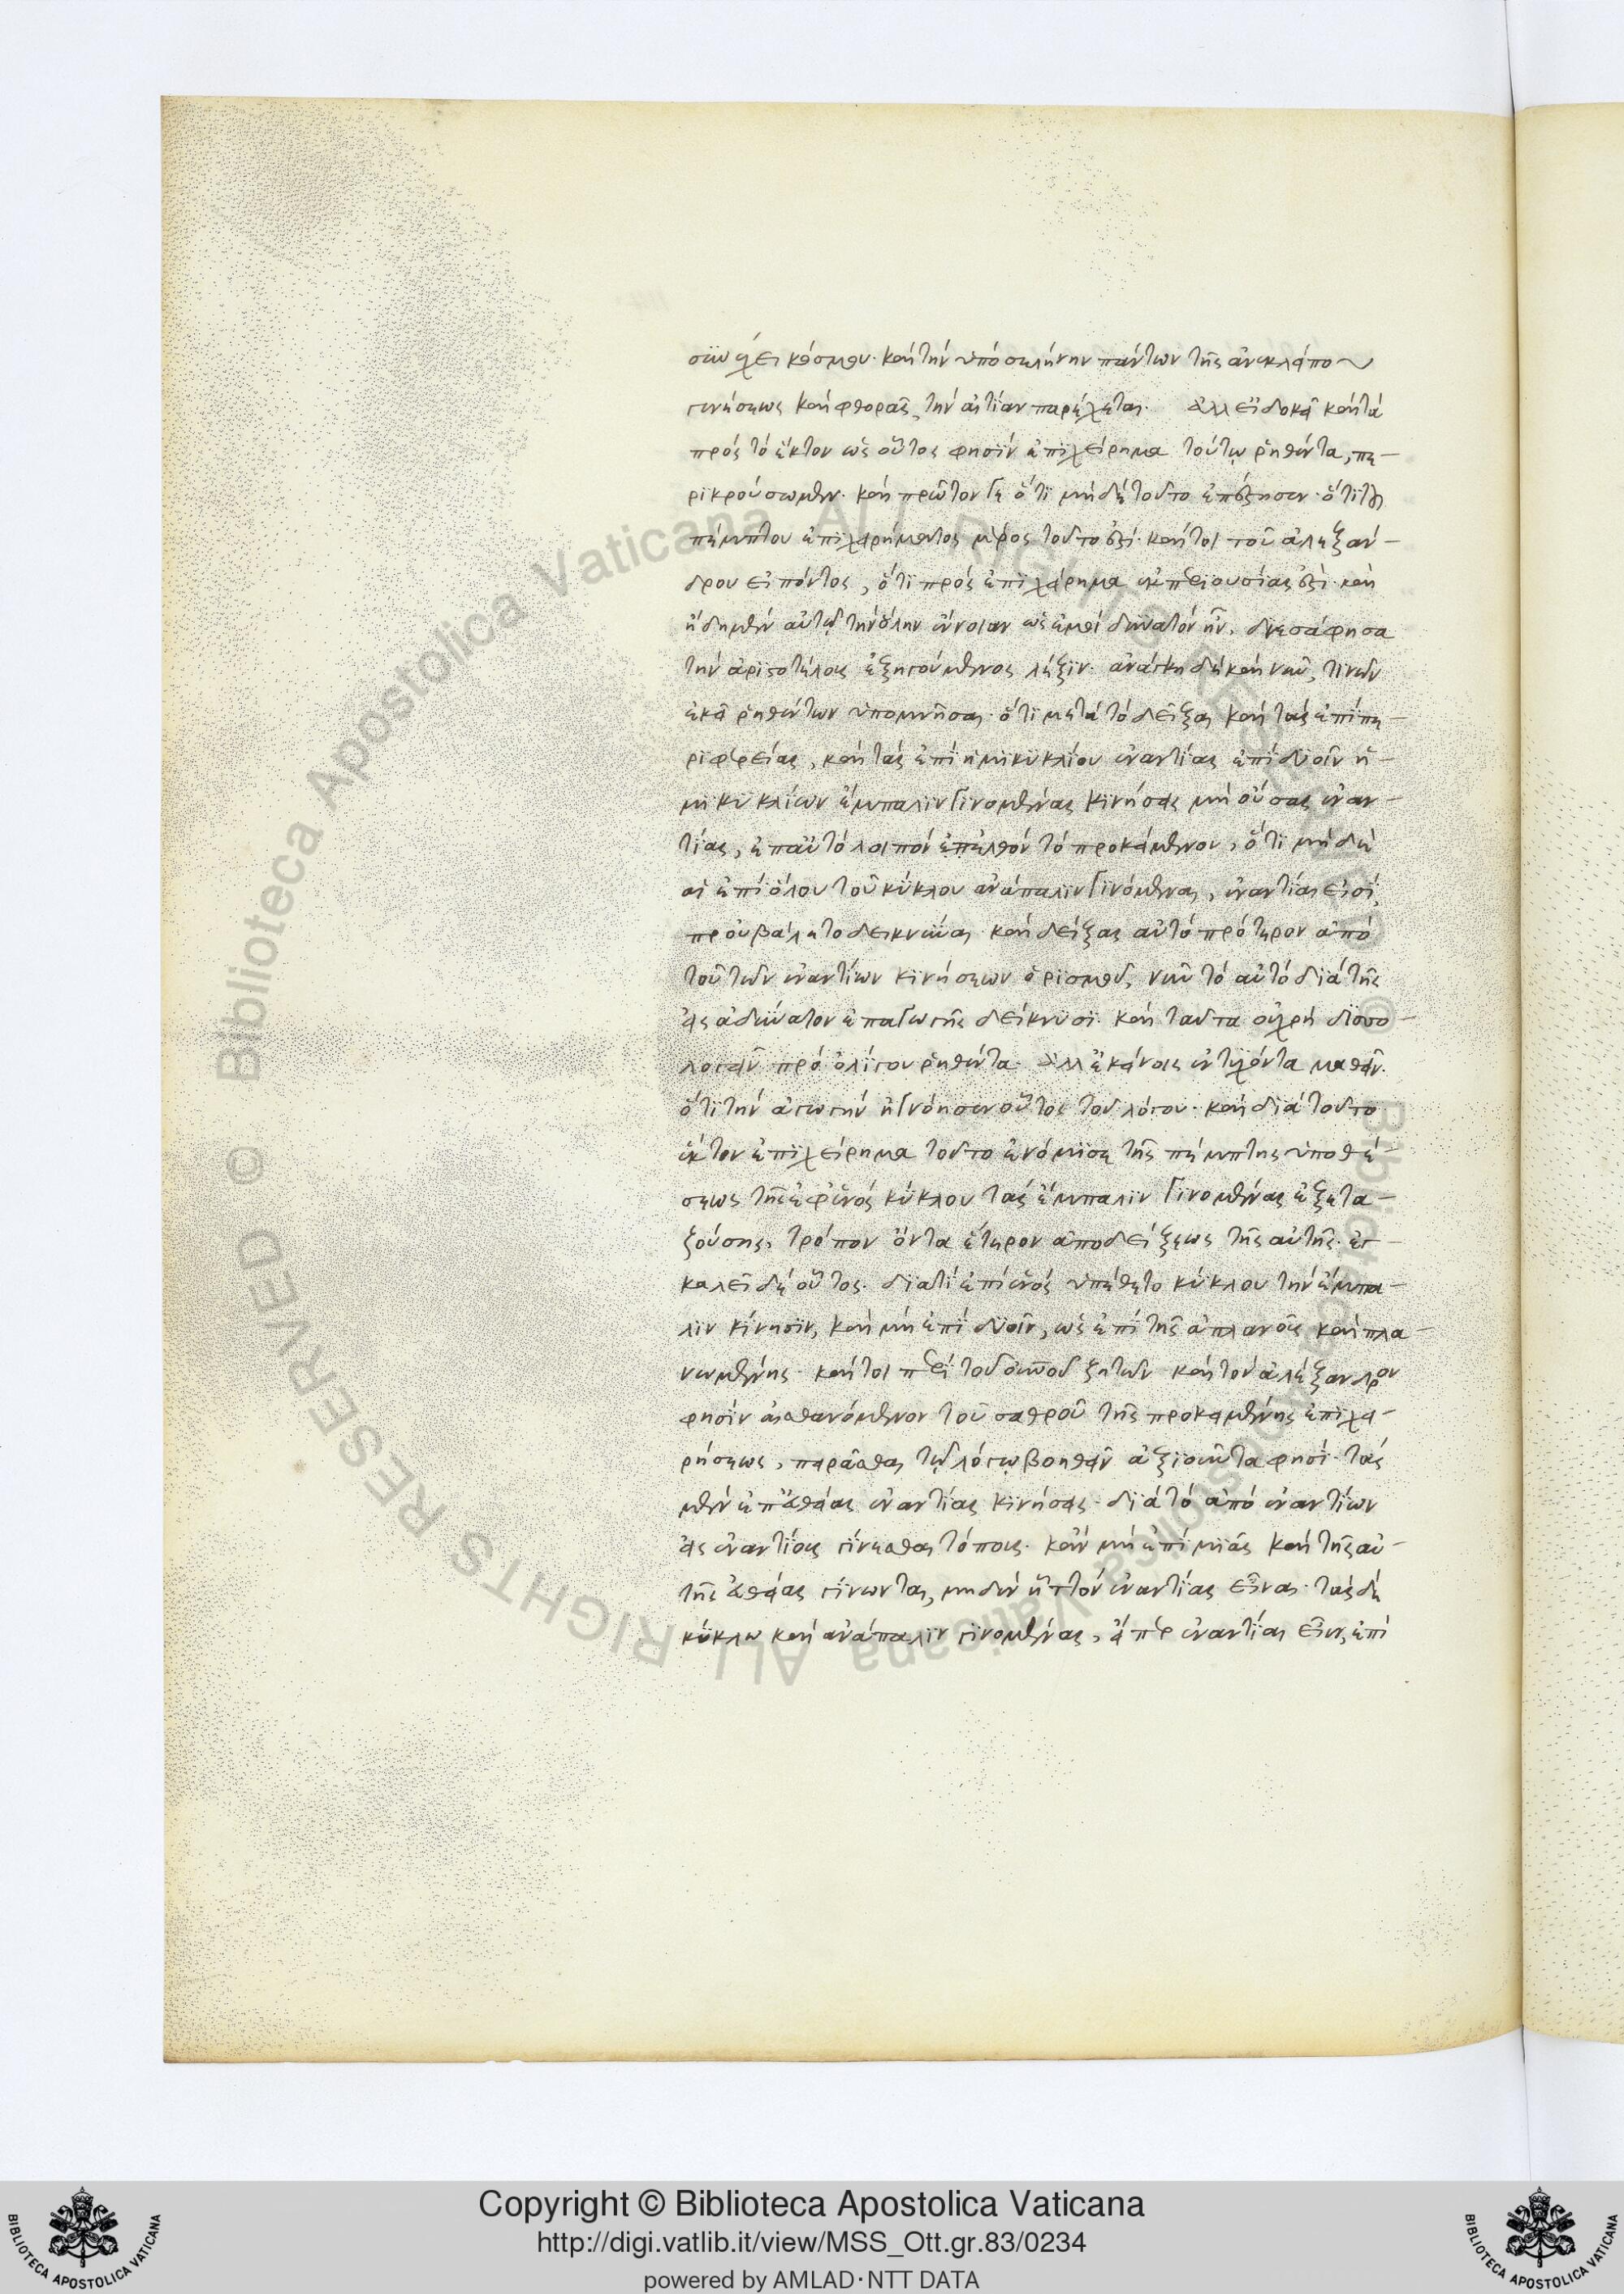 συνέχει κόσμου· καὶ τὴν ὑπὸ σελήνην πάντων τῆς ἀνεκλείπτου
γενέσεως καὶ φθορᾶς, τὴν αἰτίαν παρέχεται. ἀλλ' εἰ δοκεῖ καὶ τὰ
πρὸς τὸ ἕκτον ὡς οὗτος φησὶν ἐπιχείρημα τούτῳ ῥηθέντα, πε-
ρικρούσωμεν· καὶ πρῶτον γε ὅτι μὴ δὲ τοῦτο ἐπέστησεν· ὅτι τοῦ
πέμπτου ἐπιχειρήματος μέρος τοῦτο ἐστί· καίτοι τοῦ ἀλεξάν-
δρου εἰπόντος, ὅτι πρὸς ἐπιχείρημα ἐκ περιουσίας ἐστί· καὶ
ἤδη μὲν αὐτοῦ τὴν ὅλην ἔννοιαν ὡς ἐμοὶ δυνατὸν ἦν, διεσάφησα
τὴν ἀριστοτέλους ἐξηγούμενος λέξιν· ἀνάγκη δὲ καὶ νῦν, τινῶν
ἐκεῖ ῥηθέντων ὑπομνῆσαι· ὅτι μετὰ τὸ δεῖξαι καὶ τὰς ἐπὶ πε-
ριφερείας, καὶ τὰς ἐπὶ ἡμικυκλίου ἐναντίας ἐπὶ δυοῖν ἡ-
μικυκλίων ἔμπαλιν γινομένας κινήσεις μὴ οὔσας ἐναν-
τίας, ἐπ' αὐτὸ λοιπὸν ἐπελθὸν τὸ προκείμενον, ὅτι μὴ δὲ
αἱ ἐπὶ ὅλου τοῦ κύκλου ἀνάπαλιν γινόμεναι, ἐναντίαι εἰσί,
προὐβάλετο δεικνύναι· καὶ δείξας αὐτὸ πρότερον ἀπὸ
τοῦ τῶν ἐναντίων κινήσεων ὁρισμοῦ, νῦν τὸ αὐτὸ διὰ τῆς
εἰς ἀδύνατον ἐπαγωγῆς δείκνυσι· καὶ ταῦτα οὐ χρὴ δισσο-
λογεῖν πρὸ ὀλίγου ῥηθέντα· ἀλλ' ἐκείνοις ἐντυχόντα μαθεῖν.
ὅτι τὴν ἀγωγὴν ἠγνόησεν οὗτος τοῦ λόγου· καὶ διὰ τοῦτο
ἕκτον ἐπιχείρημα τοῦτο ἐνόμισε τῆς πέμπτης ὑποθέ-
σεως τῆς ἐφ' ἑνὸς κύκλου τὰς ἔμπαλιν γινομένας ἐξετα-
ζούσης, τρόπον ὄντα ἕτερον ἀποδείξεως τῆς αὐτῆς· ἐγ-
καλεῖ δὲ οὗτος· διατί ἐπὶ ἑνὸς ὑπέθετο κύκλου τὴν ἔμπα-
λιν κίνησιν, καὶ μὴ ἐπὶ δυοῖν, ὡς ἐπὶ τῆς ἀπλανοῦς καὶ πλα-
νωμένης· καίτοι περὶ τοῦ οὐνοῦ ζητῶν· καὶ τὸν ἀλέξανδρον
φησὶν αἰσθανόμενον τοῦ σαθροῦ τῆς προκειμένης ἐπιχει-
ρήσεως, πειρᾶσθαι τῷ λόγῳ βοηθεῖν ἀξιοῦντα φησί· τὰς
μὲν ἐπ' εὐθείας ἐναντίας κινήσεις· διὰ τὸ ἀπὸ ἐναντίων
εἰς ἐναντίους γίνεσθαι τόπους· κἂν μὴ ἐπὶ μιᾶς καὶ τῆς αὐ-
τῆς εὐθείας γίνωνται, μηδὲν ἧττον ἐναντίας εἶναι· τὰς δὲ
κύκλω καὶ ἀνάπαλιν γινομένας, εἴπερ ἐναντίαι εἶεν, ἐπὶ
Copyright © Biblioteca Apostolica Vaticana
http://digi.vatlib.it/view/MSS_Ott.gr.83/0234
powered by AMLAD·NTT DATA
© Biblioteca Apostolica Vaticana ALL RIGHTS RESERVED
© Biblioteca Apostolica Vaticana ALL RIGHTS RESERVED
BIBLIOTECA APOSTOLICA VATICANA
BIBLIOTECA APOSTOLICA VATICANA